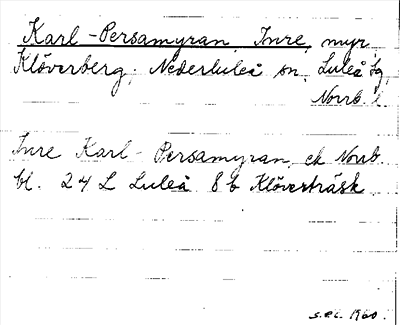 Karl-Persamyran, Inre, myr,
Klöverberg, Nederluleå sn, Luleå tg,
Norrb. l.
Inre Karl-Persamyran ek Norrb.
bl. 24 L Luleå 8 b Klöverträsk
s.å.c. 1960.